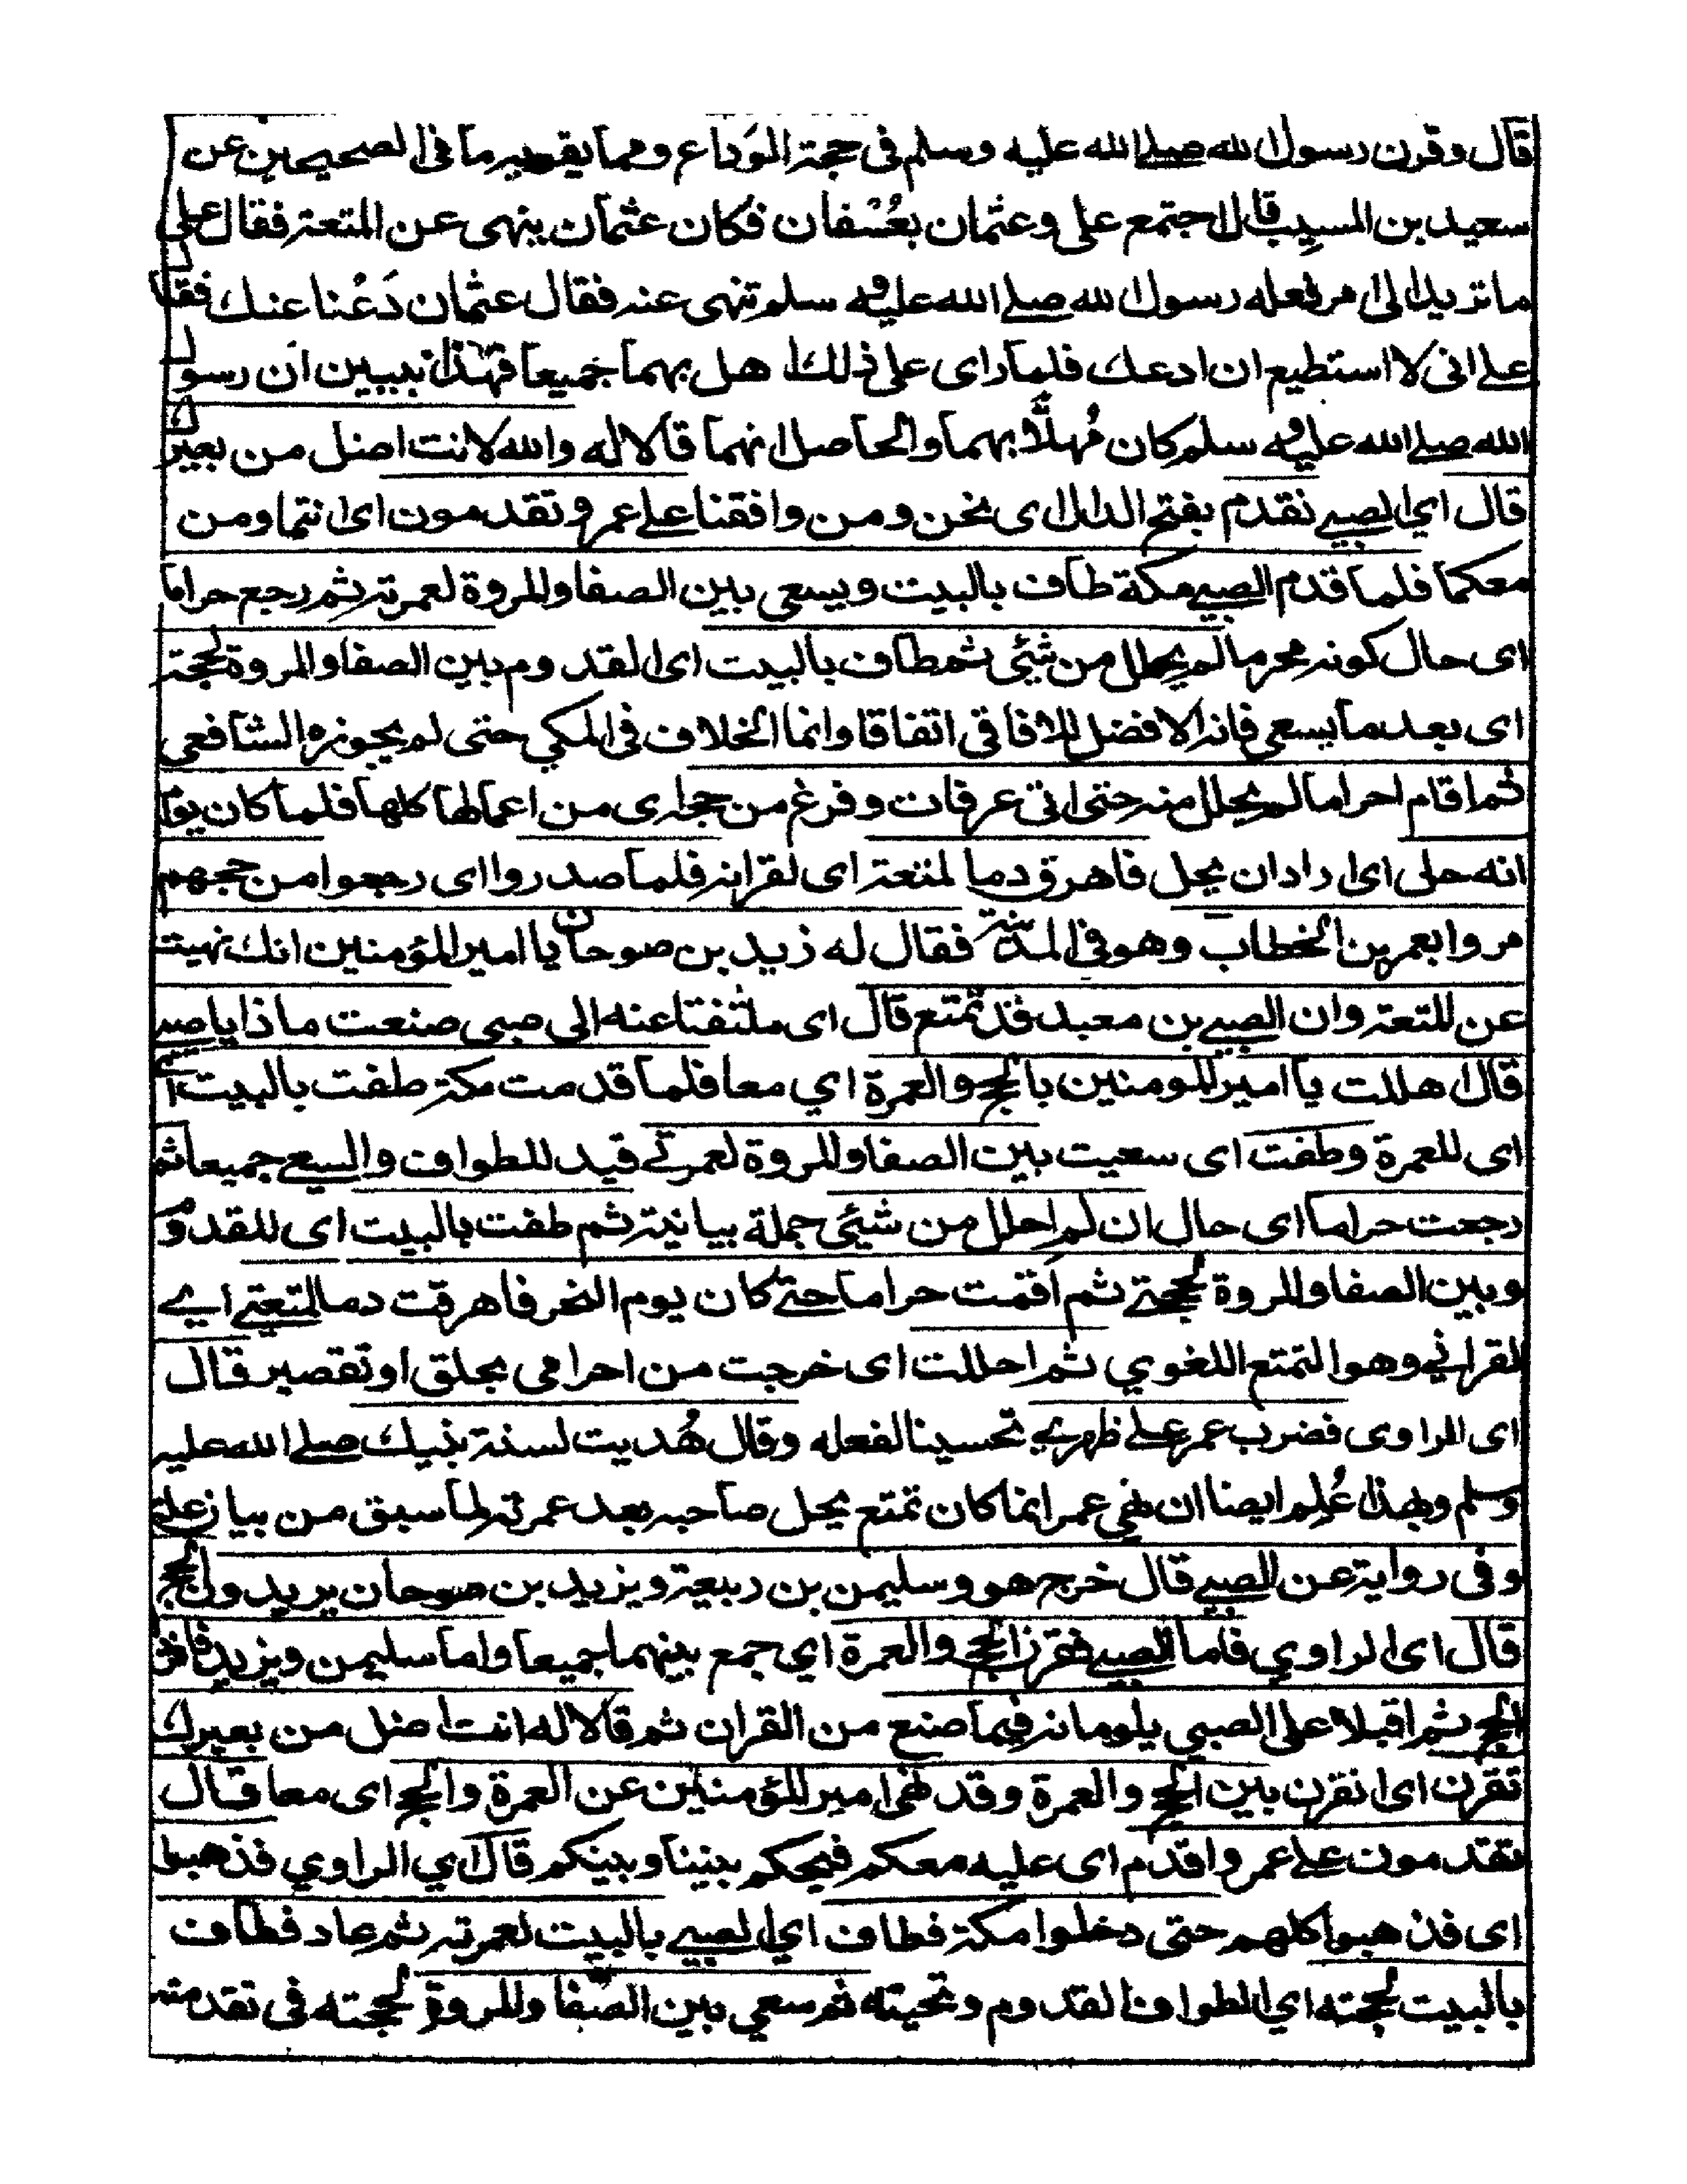 قال وقرن رسول الله صلى الله عليه وسلم فى حجة الوداع ومما يقويه ما فى الصحيحين عن
سعيد بن المسيب قال اجتمع على وعثمان بعُسْفان فكان عثمان ينهى عن المتعة فقال على
ما تريد الى امر فعله رسول الله صلى الله عليه وسلم تنهى عنه فقال عثمان دَعْنا عنك فقال
على انى لا استطيع ان ادعك فلما راى على ذلك اهل بهما جميعا فهذا تبيين ان رسول
الله صلى الله عليه وسلم كان مُهلًّا بهما والحاصل انهما قالا له والله لانت اضل من بعيرك
قال اى الصبى نقدم بفتح الدال اى نحن ومن وافقنا على عمر وتقدمون اى انتما ومن
معكما فلما قدم الصبى مكة طاف بالبيت ويسعى بين الصفا والمروة لعمرته ثم رجع حراما
اى حال كونه محرما لم يحلل من شئى ثم طاف بالبيت اى القدوم بين الصفا والمروة لحجته
اى بعد ما يسعى فانه الافضل للافاقى اتفاقا وانما الخلاف فى المكي حتى لم يجوزه الشافعى
ثم اقام احراما لم يحلل منه حتى اتى عرفات وفرغ من حجه اى من اعمالها كلها فلما كان يوم
انه حلى اى اراد ان يحل فاهرق دما لمتعة اى لقرانه فلما صدروا اى رجعوا من حجهم
مروا بعمر بن الخطاب وهو فى المدينة فقال له زيد بن صوحان يا امير المؤمنين انك نهيت
عن المتعة وان الصبى بن معبد قد تمتع قال اى ملتفتا عنه الى صبى صنعت ماذا يا صبى
قال اهللت يا امير المومنين بالحج والعمرة اي معا فلما قدمت مكة طفت بالبيت
اى للعمرة وطفت اى سعيت بين الصفا والمروة لعمرتى قيد للطواف والسعى جميعا ثم
رجعت حراما اى حال ان لم احلل من شئى جملة بيانية ثم طفت بالبيت اى للقدوم
وبين الصفا والمروة لحجتى ثم اقمت حراما حتى كان يوم النحر فاهرقت دما لمتعتى اى
لقرانى وهو التمتع اللغوي ثم احللت اى خرجت من احرامى بحلق او تقصير قال
اى الراوى فضرب عمر على ظهره تحسينا لفعله وقال هُديت لسنة نبيك صلى الله عليه
وسلم وبهذا عُلِم ايضا ان نهى عمر انما كان تمتع يحل صاحبه بعد عمرته لما سبق من بيان علته
وفى رواية عن الصبى قال خرج هو وسليمن بن ربيعة ويزيد بن صوحان يريدون الحج
قال اى الراوي فاما الصبى فقرن الحج والعمرة اي جمع بينهما جميعا واما سليمن ويزيد فافردا
الحج ثم اقبلا على الصبى يلومانه فيما صنع من القران ثم قالا له انت اضل من بعيرك
تقرن اى انقرن بين الحج والعمرة وقد نهى امير المؤمنين عن العمرة والحج اى معا قال
تقدمون على عمر واقدم اى عليه معكم فيحكم بيننا وبينكم قال اي الراوي فذهبوا
اى فذهبوا كلهم حتى دخلوا مكة فطاف اي الصبى بالبيت لعمرته ثم عاد فطاف
بالبيت لحجته اي الطواف القدوم وتحيته ثم سعي بين الصفا والمروة لحجته فى تقدمته